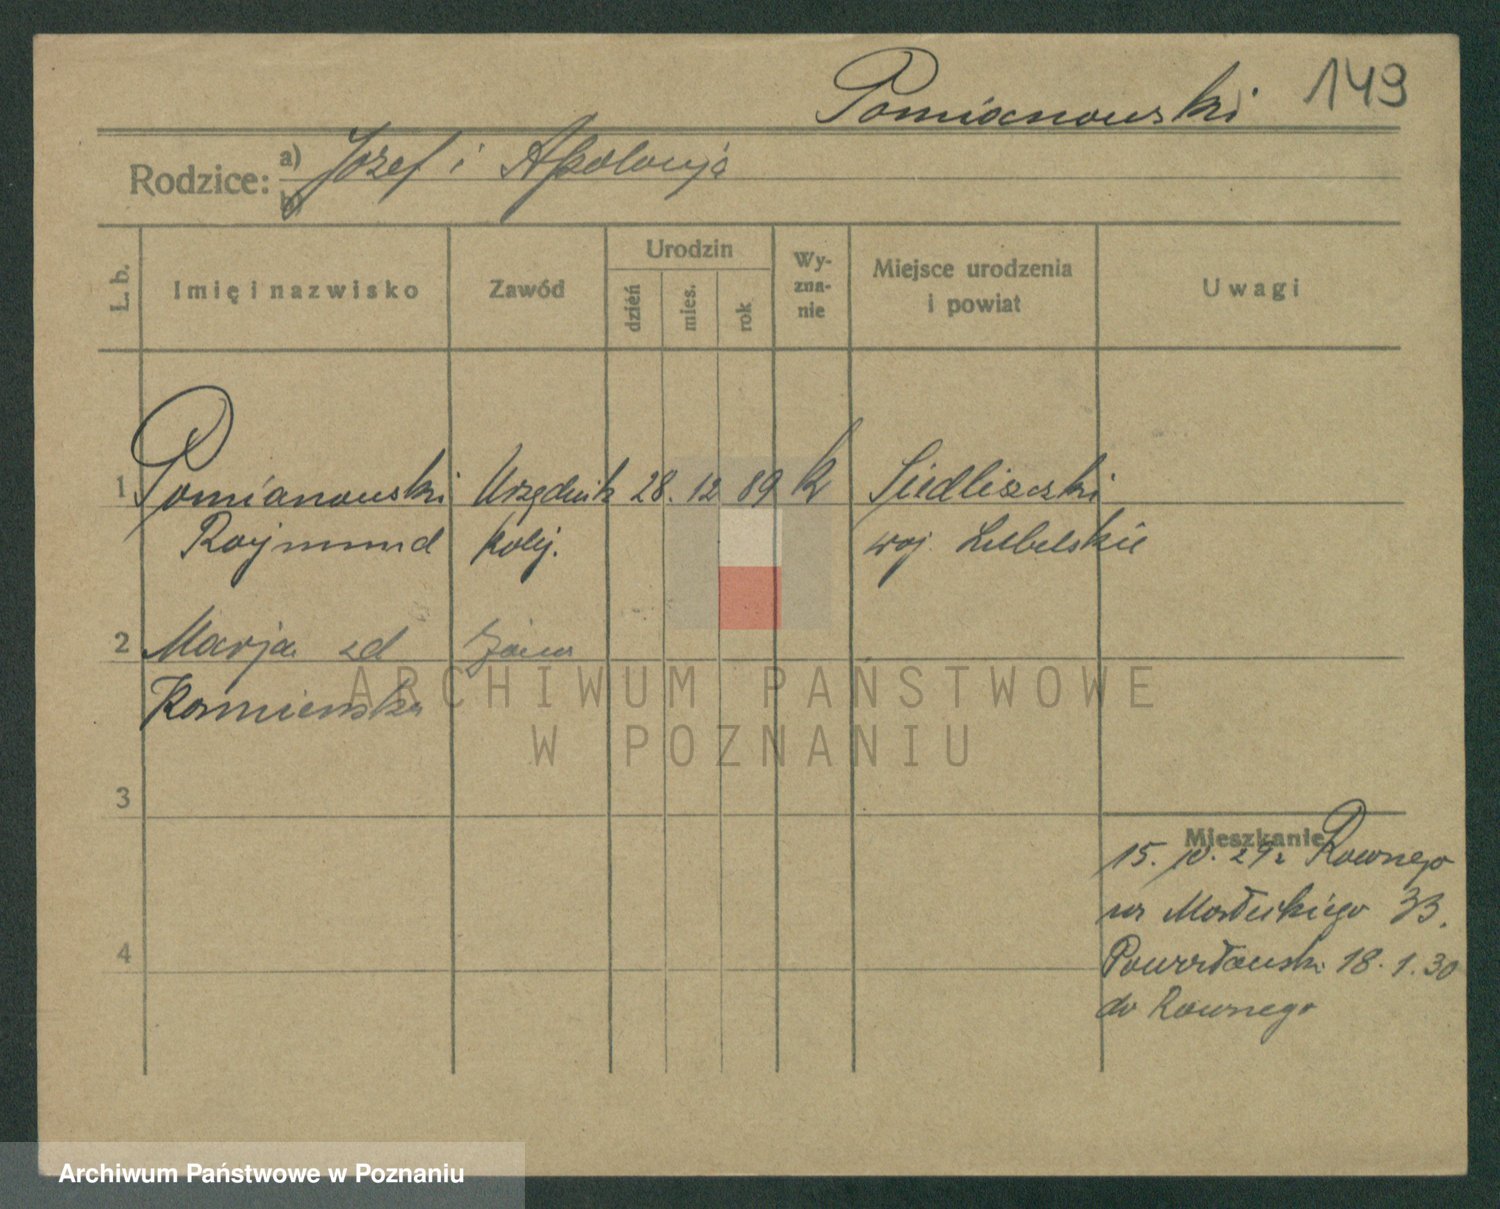 Pomianowski 149
Rodzice: a) Józef i Apolonja
b)
L. b. Imię i nazwisko Zawód Urodzin dzień mies. rok Wy-zna-nie Miejsce urodzenia i powiat Uwagi
1 Pomianowski Urzędnik 28. 12 89 k Siedliszczki
Rajmund kolej. woj. Lubelskie
2 Marja zd żona
Kamieńska
ARCHIWUM PAŃSTWOWE
W POZNANIU
3
Mieszkanie
15. 29 z Rownego
33.
4
18.1.30
do Rownego
Archiwum Państwowe w Poznaniu